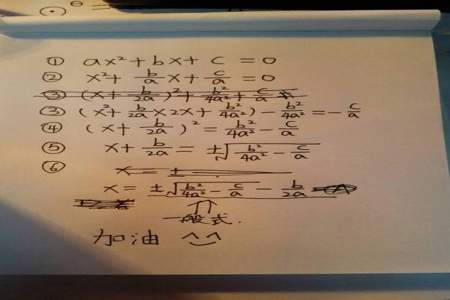 ① ax²+bx+c=0
② x²+b/a x+c/a=0
③ (x+b/2a)²+b²/4a²+c/a
③ (x²+b/2a×2x+b²/4a²)-b²/4a²=-c/a
④ (x+b/2a)²=b²/4a²-c/a
⑤ x+b/2a=±√(b²/4a²-c/a)
⑥
x=±√(b²/4a²-c/a)-b/2a
一般式.
加油 ^^